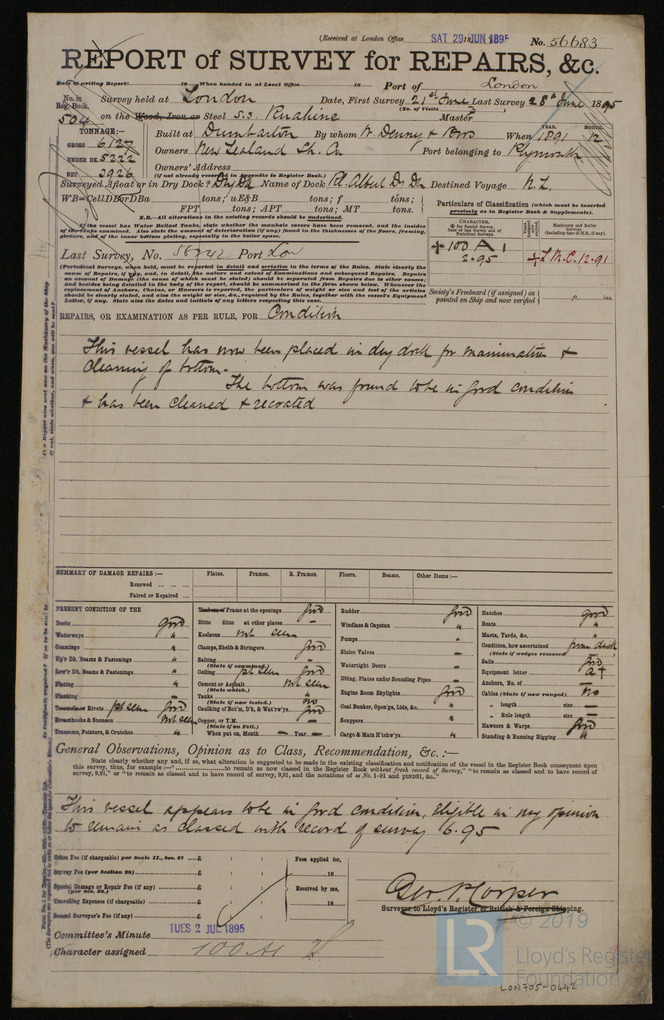 (Received at London Office SAT 29 JUN 1895 No. 56683
REPORT of SURVEY for REPAIRS, &c.
Date of writing Report: 18 When handed in at Local Office 18 Port of London
No. in Reg. Book. Survey held at London Date, First Survey 21st June Last Survey 28th June 1895
(No. of Visits
504 on the Wood, Iron or Steel S.S. Ruahine Master
TONNAGE:—
GROSS 6127
UNDER DK. 5222
NET 3926
Built at Dumbarton By whom W Denny & Bros When 1891 12
YEAR. MONTH.
Owners New Zealand Sh. Co Port belonging to Plymouth
Owners' Address
(if not already recorded in Appendix to Register Book.)
Surveyed Afloat or in Dry Dock? Dry Dk Name of Dock Rl. Albert D. Dk Destined Voyage N.Z.
WB=CellDBorDBa tons; uE&B tons; f tons;
FPT tons; APT tons; MT tons.
N.B.—All alterations in the existing records should be underlined.
If the vessel has Water Ballast Tanks, state whether the manhole covers have been removed, and the insides of the tanks examined. Also state the amount of deterioration (if any) found in the thicknesses of the floors, framing, girders, and of the inner bottom plating, especially in the boiler space.
Particulars of Classification (which must be inserted precisely as in Register Book & Supplements).
CHARACTER.
Machinery and Boiler Surveys
+ 100 A 1
2.95
+ L.M.C. 12.91
Last Survey, No. 56042 Port Lon
(Periodical Surveys, when held, must be reported in detail and seriatim in the terms of the Rules. State clearly the cause of Repairs, if any, and, in detail, the nature and extent of Examinations and subsequent Repairs. Repairs on account of Damage (the cause of which must be stated) should be separated from Repairs due to other causes; and besides being detailed in the body of the report, should be summarised in the form shown below. Whenever the replacement of Anchors, Chains, or Hawsers is reported, the particulars of weight or size and test of the articles should be clearly stated, and also the weight or size, &c., required by the Rules, together with the vessel's Equipment Letter, if any. State also the dates and initials of any letters respecting this case.
Society's Freeboard (if assigned) as painted on Ship and now verified ft. ins.
REPAIRS, OR EXAMINATION AS PER RULE, FOR Condition
This vessel has now been placed in dry dock for examination &
cleaning of bottom.
The bottom was found to be in good condition
& has been cleaned & recoated
SUMMARY OF DAMAGE REPAIRS:— Plates. Frames. R. Frames. Floors. Beams. Other Items:—
Renewed
Faired or Repaired
PRESENT CONDITION OF THE
Decks good
Waterways "
Coamings "
Up'r Dk. Beams & Fastenings "
Low'r Dk. Beams & Fastenings "
Plating "
Planking —
Treenails or Rivets pt seen good
Breasthooks & Stemson not seen
Transoms, Pointers, & Crutches "
Timbers of Frame at the openings good
Ditto ditto at other places —
Keelsons not seen
Clamps, Shelfs & Stringers good
Salting —
(State if examined.)
Ceiling pt seen good
Cement or Asphalt not seen
(State which.)
Tanks —
(State if now tested.) no
Caulking of Bot'm, D'k, & Wat'rw'ys good
Copper, or Y.M. —
(State if on Felt.)
When put on, Month — Year —
Rudder good
Windlass & Capstan "
Pumps "
Sluice Valves —
Watertight Doors —
Dblng. Plates under Sounding Pipes —
Engine Room Skylights good
Coal Bunker, Open'gs, Lids, &c. "
Scuppers "
Cargo & Main H'tchw'ys "
Hatches good
Boats "
Masts, Yards, &c. "
Condition, how ascertained from deck
(State if wedges removed)
Sails good
Equipment letter a+
Anchors, No. of —
Cables (State if now ranged) no
" length size —
" Rule length size —
Hawsers & Warps good
Standing & Running Rigging "
General Observations, Opinion as to Class, Recommendation, &c.:—
State clearly whether any, and if so, what alteration is suggested to be made in the existing classification and notification of the vessel in the Register Book consequent upon this survey, thus, for example:—"to remain as classed in the Register Book without fresh record of Survey," "to remain as classed and to have record of survey, 9,91," or "to remain as classed and to have record of survey, 9,91, and the notations of ss No. 1-91 and ptND91, &c."
This vessel appears to be in good condition, Eligible in my opinion
to remain as classed with record of survey 6.95
Office Fee (if chargeable) per Scale II., Sec. 27 £ : :
Survey Fee (per Section 28) £ : :
Special Damage or Repair Fee (if any) (per Sec. 28.) £ : :
Travelling Expenses (if chargeable) £ : :
Second Surveyor's Fee (if any) £ : :
Fees applied for, 18
Received by me, 18
Geo. P. Corper
Surveyor to Lloyd's Register of British & Foreign Shipping.
Committee's Minute TUES 2 JUL 1895
Character assigned 100A1
© 2019
LR
Lloyd's Register
Foundation
LON705-0442